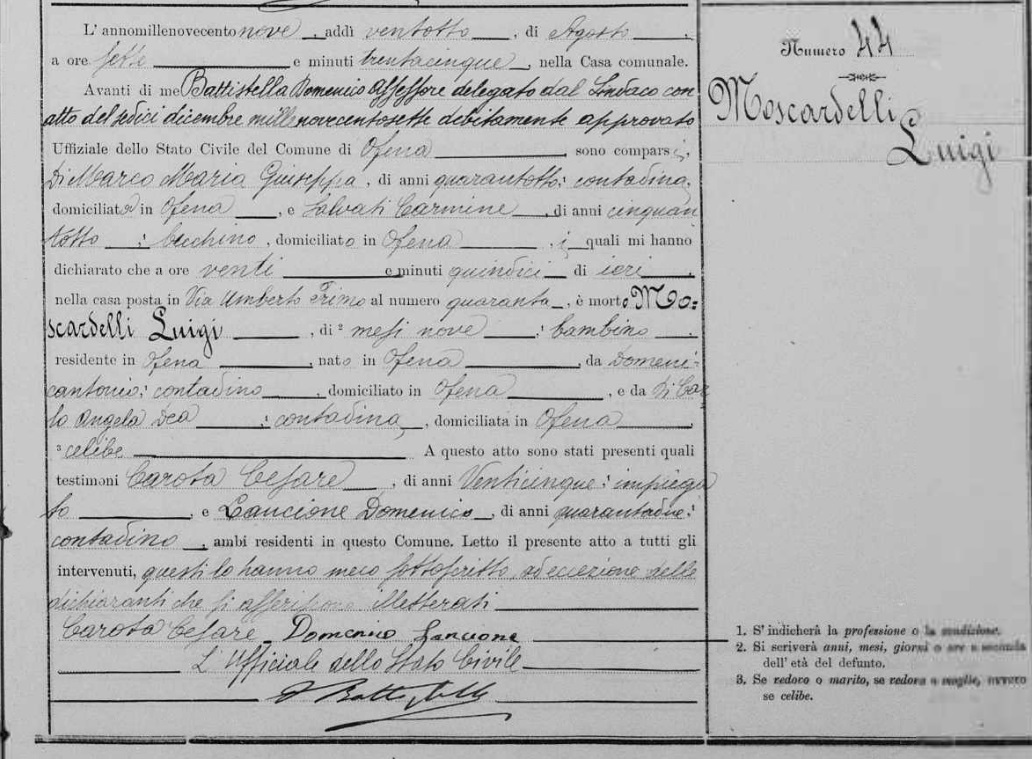 L' annomillenovecento nove , addì ventotto , di Agosto ,
a ore sette e minuti trentacinque , nella Casa comunale.
Avanti di me Battistella Domenico Assessore delegato dal Sindaco con
atto del sedici dicembre millenovecentosette debitamente approvato
Uffiziale dello Stato Civile del Comune di Ofena , sono comparsi,
Di Marco Maria Giuseppa , di anni quarantotto; contadina,
domiciliata in Ofena , e Salvati Carmine , di anni cinquan
totto ; becchino , domiciliato in Ofena , i quali mi hanno
dichiarato che a ore venti e minuti quindici di ieri ,
nella casa posta in Via Umberto Primo al numero quaranta , è morto Mo=
scardelli Luigi , di ² mesi nove ; bambino ,
residente in Ofena , nato in Ofena , da Domeni-
cantonio; contadino , domiciliato in Ofena , e da Di Car
lo Angela Dea ; contadina , domiciliata in Ofena
³ celibe A questo atto sono stati presenti quali
testimoni Carota Cesare , di anni Venticinque; impiega
to , e Lancione Domenico , di anni quarantadue;
contadino , ambi residenti in questo Comune. Letto il presente atto a tutti gli
intervenuti, questi lo hanno meco sottoscritto, ad eccezione delle
dichiaranti che si illetterati
Carota Cesare Domenico Lancione
L' Ufficiale dello Stato Civile
Numero 44
Moscardelli
Luigi
1. S' indicherà la professione o la condizione.
2. Si scriverà anni, mesi, giorni o ore a seconda
dell' età del defunto.
3. Se vedovo o marito, se vedova o moglie, ovvero
se celibe.